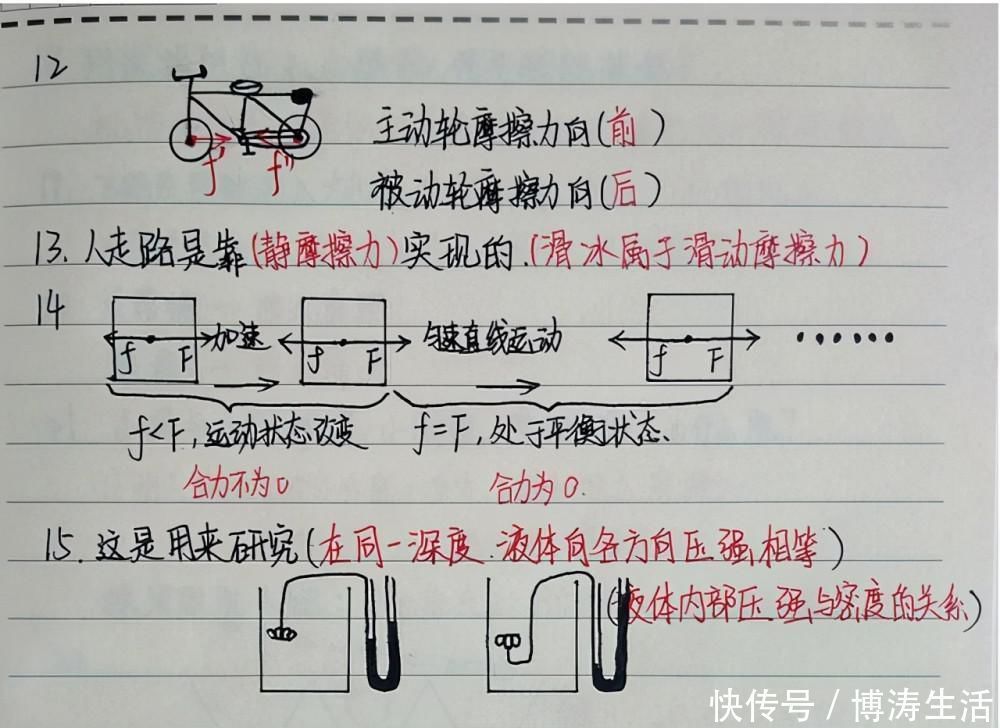 12
主动轮摩擦力向(前)
f' f''
被动轮摩擦力向(后)
13.人走路是靠(静摩擦力)实现的.(滑冰属于滑动摩擦力)
14
f F 加速 f F 匀速直线运动 f F ......
f<F,运动状态改变 f=F,处于平衡状态、
合力不为0 合力为0.
15.这是用来研究(在同一深度.液体向各方向压强相等)
(液体内部压强与密度的关系)
快传号/博涛生活